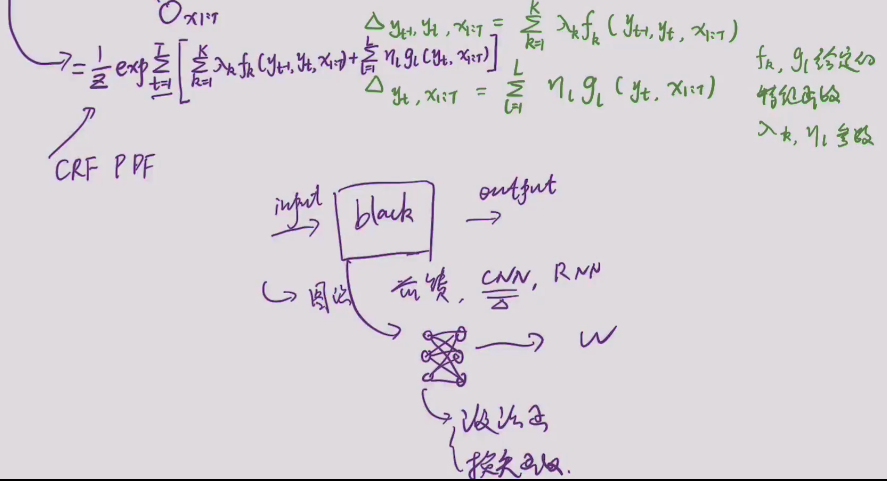 x1:T
= 1/Z exp ∑_{t=1}^{T} [ ∑_{k=1}^{K} λ_k f_k (y_{t-1}, y_t, x_{1:T}) + ∑_{l=1}^{L} η_l g_l (y_t, x_{1:T}) ]
Δ y_{t-1}, y_t, x_{1:T} = ∑_{k=1}^{K} λ_k f_k ( y_{t-1}, y_t, x_{1:T} )
Δ y_t, x_{1:T} = ∑_{l=1}^{L} η_l g_l ( y_t, x_{1:T} )
f_k, g_l 给定的
特征函数
λ_k, η_l 参数
CRF PDF
input
black
output
CNN, RNN
W
损失函数.